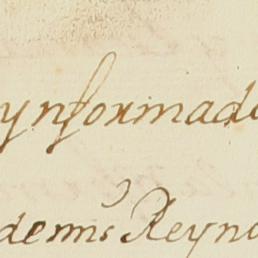 ynformado
demis Reyno